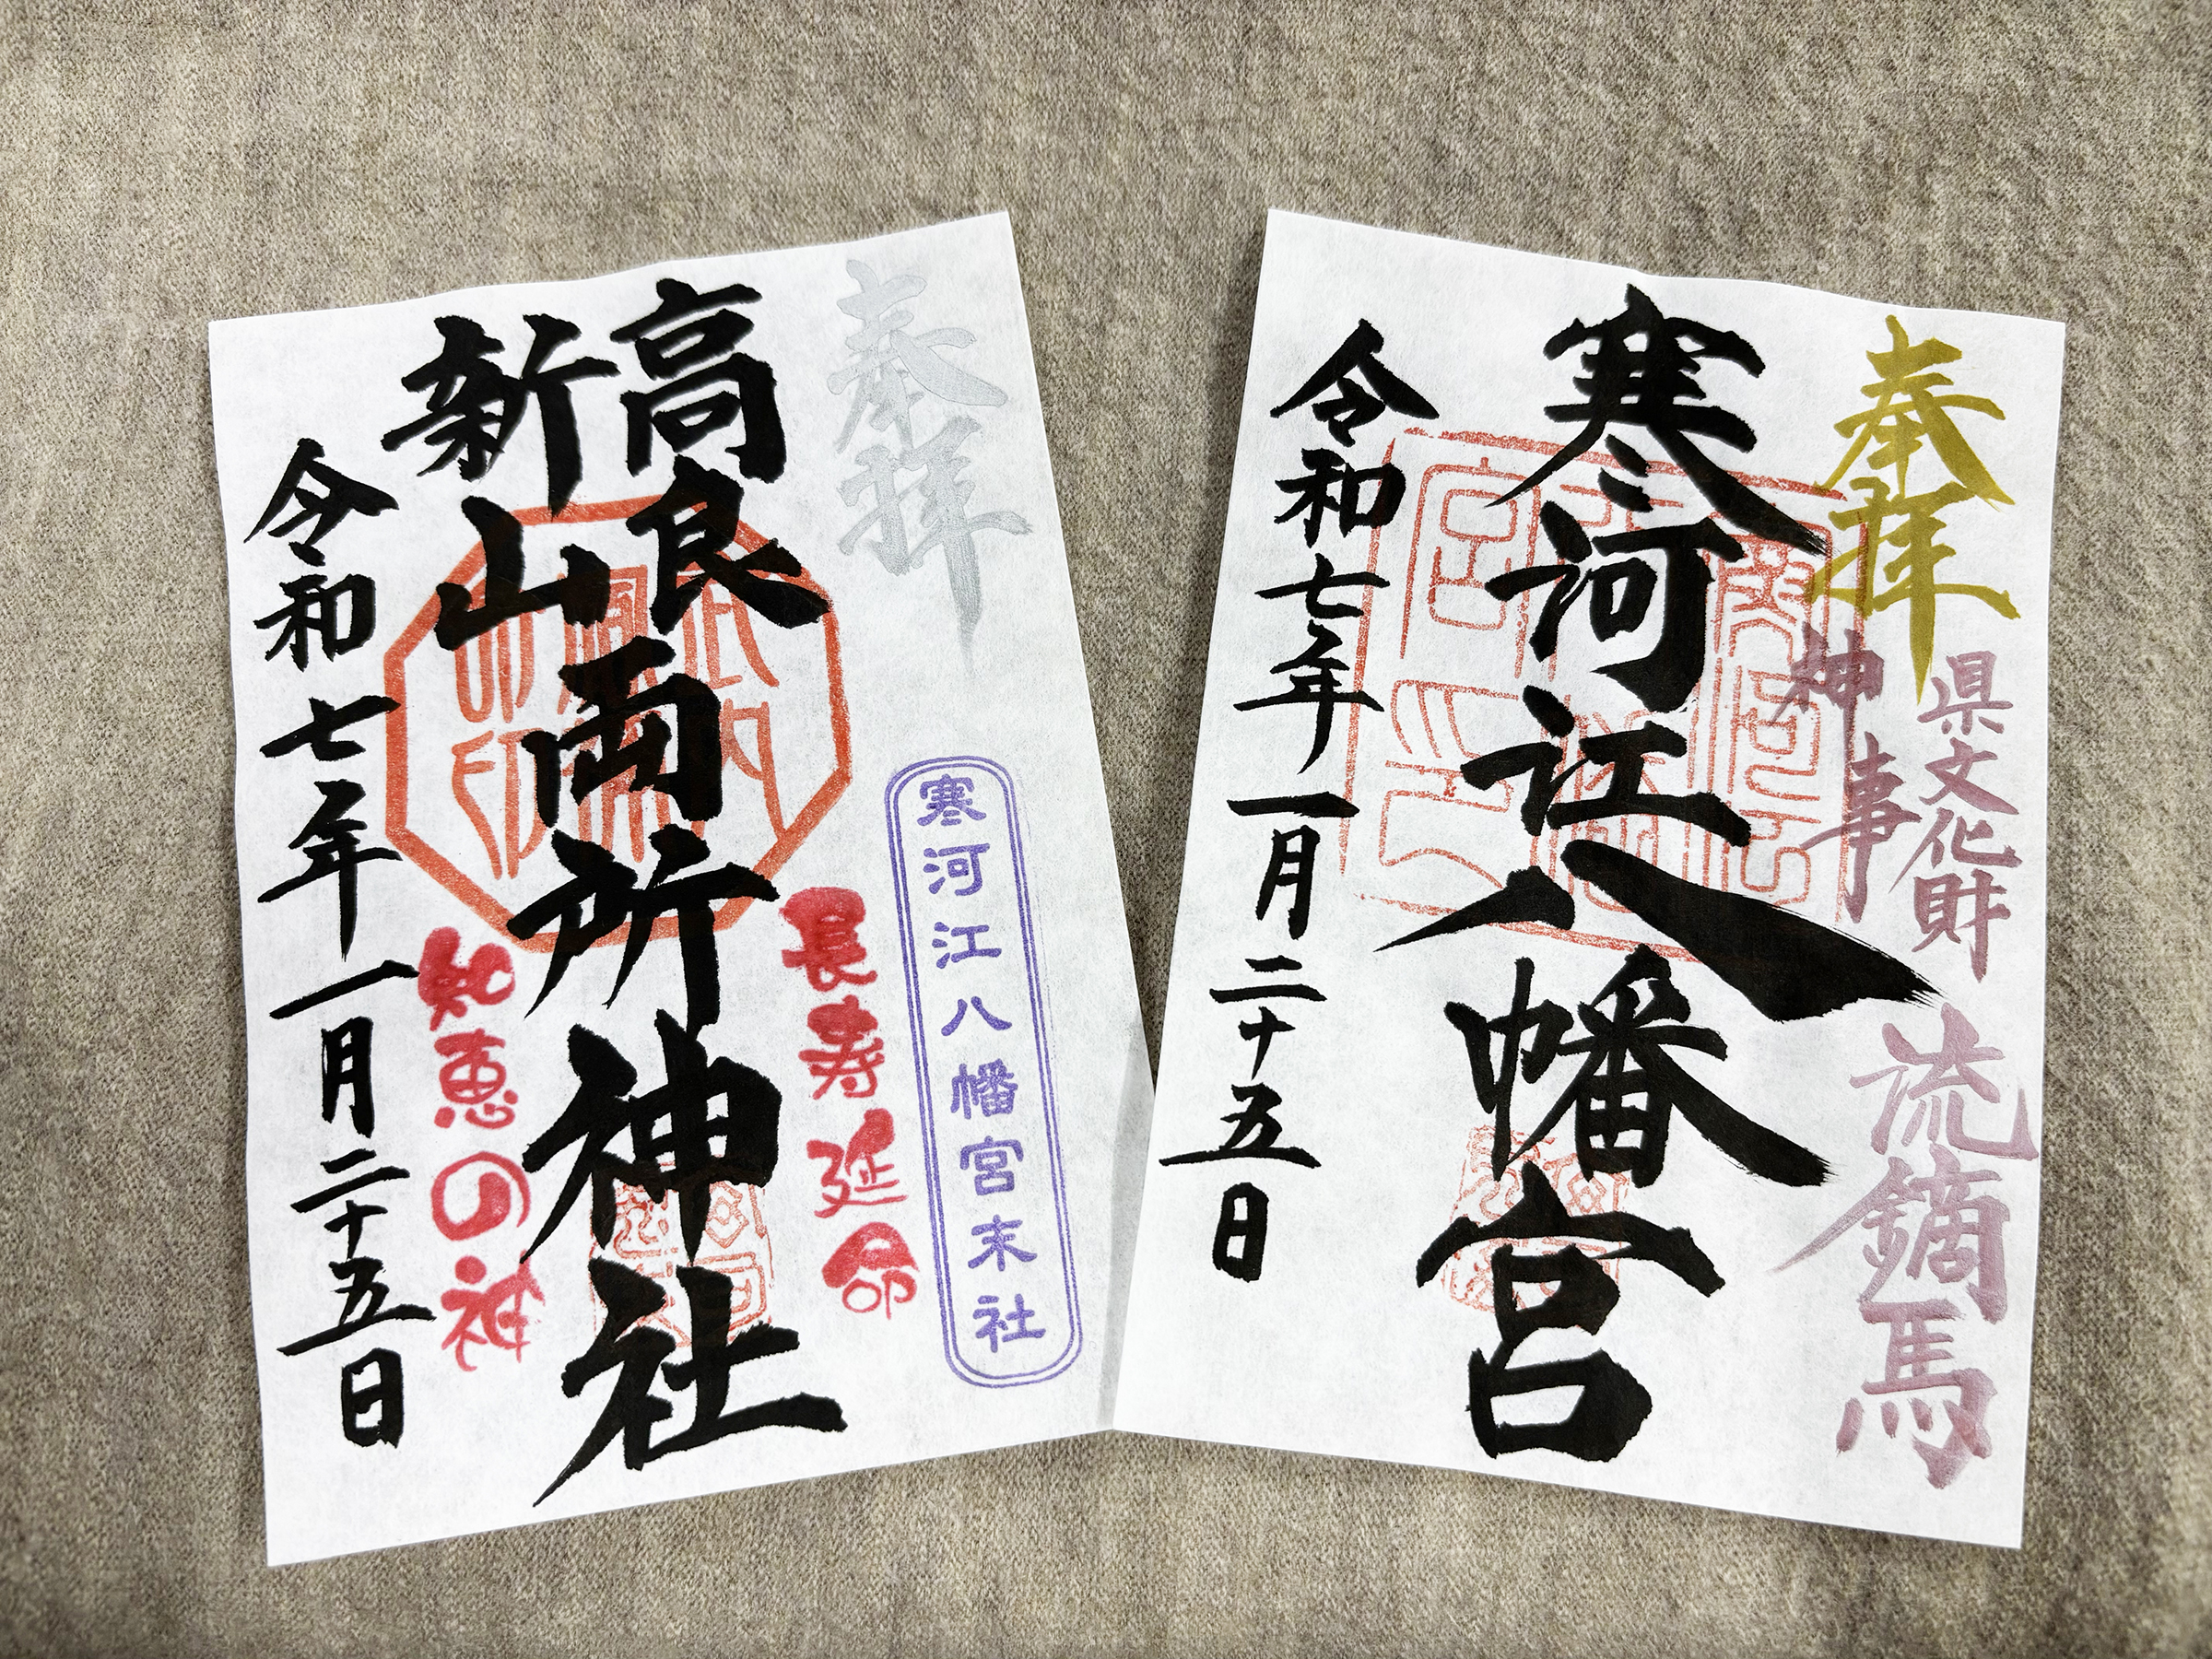 奉拝
高良
新山
両所神社
長寿延命
知恵の神
寒河江八幡宮末社
令和七年一月二十五日
奉拝
県文化財
神事
流鏑馬
寒河江八幡宮
令和七年一月二十五日